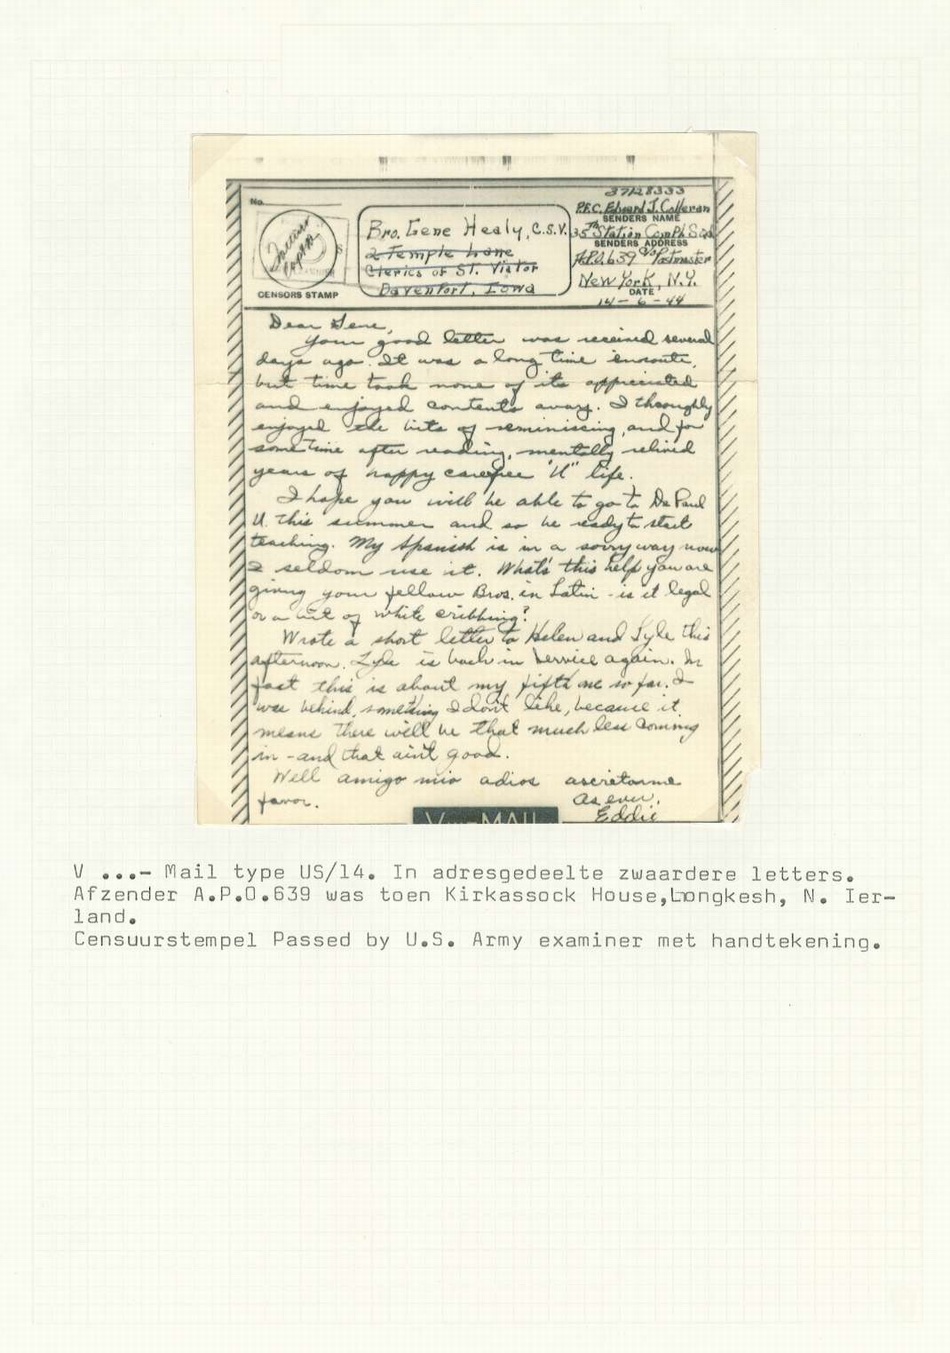 No.
37128333
P.F.C. Edward J. Calleran
SENDERS NAME
35th Station Comp Ph Sig
SENDERS ADDRESS
A.P.O. 639 c/o Postmaster
New York, N.Y.
DATE
14-6-44
CENSORS STAMP
Bro. Gene Healy, C.S.V.
2 Temple Lane
Clerics of St. Viator
Davenport, Iowa
Dear Gene,
Your good letter was received several
days ago. It was a long time enroute,
but time took none of its appreciated
and enjoyed contents away. I thoroughly
enjoyed the bits of reminiscing, and for
sometime after reading, mentally relived
years of happy carefree "U" life.
I hope you will be able to go to De Paul
U. this summer and so be ready to start
teaching. My Spanish is in a sorry way now
I seldom use it. What's this help you are
giving your fellow Bros. in Latin - is it legal
or a bit of white cribbing?
Wrote a short letter to Helen and Lyle this
afternoon. Lyle is back in service again. In
fact this is about my fifth one so far. I
was behind, something I don't like, because it
means there will be that much less coming
in - and that ain't good.
Well amigo mio adios
favor.
As ever,
Eddie
V···-MAIL
V ...- Mail type US/14. In adresgedeelte zwaardere letters.
Afzender A.P.O.639 was toen Kirkassock House,Longkesh, N. Ier-
land.
Censuurstempel Passed by U.S. Army examiner met handtekening.